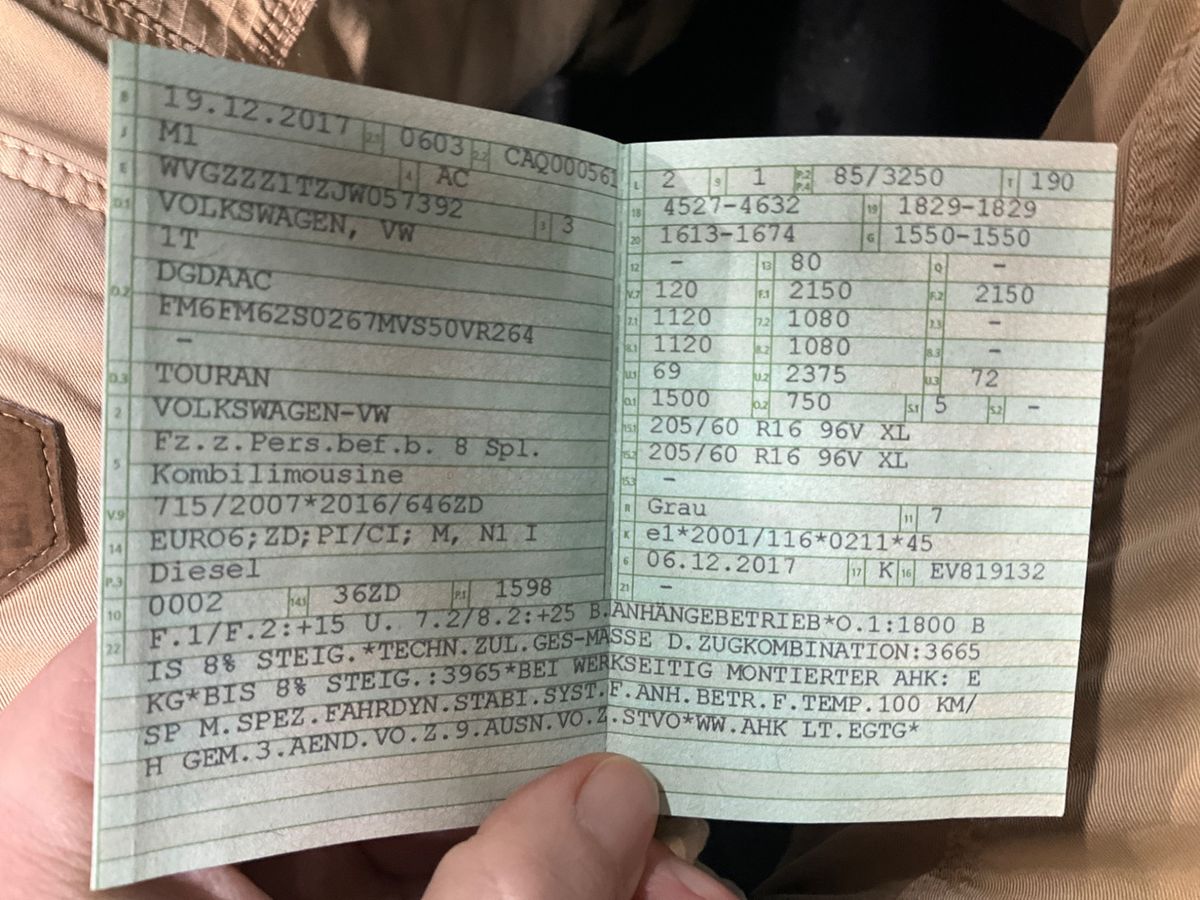 B 19.12.2017 2.1 0603 2.2 CAQ000561
J M1 4 AC
E WVGZZZ1TZJW057392 3 3
D.1 VOLKSWAGEN, VW
1T
D.2 DGDAAC
FM6FM62S0267MVS50VR264
–
D.3 TOURAN
2 VOLKSWAGEN-VW
Fz.z.Pers.bef.b. 8 Spl.
5 Kombilimousine
V.9 715/2007*2016/646ZD
14 EURO6;ZD;PI/CI; M, N1 I
P.3 Diesel
10 0002 14.1 36ZD P.1 1598
L 2 9 1 P.2 P.4 85/3250 T 190
18 4527-4632 19 1829-1829
20 1613-1674 G 1550-1550
12 – 13 80 Q –
V.7 120 F.1 2150 F.2 2150
7.1 1120 7.2 1080 7.3 –
8.1 1120 8.2 1080 8.3 –
U.1 69 U.2 2375 U.3 72
O.1 1500 O.2 750 S.1 5 S.2 –
15.1 205/60 R16 96V XL
15.2 205/60 R16 96V XL
15.3 –
R Grau 11 7
K e1*2001/116*0211*45
6 06.12.2017 17 K 16 EV819132
21 –
22 F.1/F.2:+15 U. 7.2/8.2:+25 B.ANHÄNGEBETRIEB*O.1:1800 B
IS 8% STEIG.*TECHN.ZUL.GES-MASSE D.ZUGKOMBINATION:3665
KG*BIS 8% STEIG.:3965*BEI WERKSEITIG MONTIERTER AHK: E
SP M.SPEZ.FAHRDYN.STABI.SYST.F.ANH.BETR.F.TEMP.100 KM/
H GEM.3.AEND.VO.Z.9.AUSN.VO.Z.STVO*WW.AHK LT.EGTG*